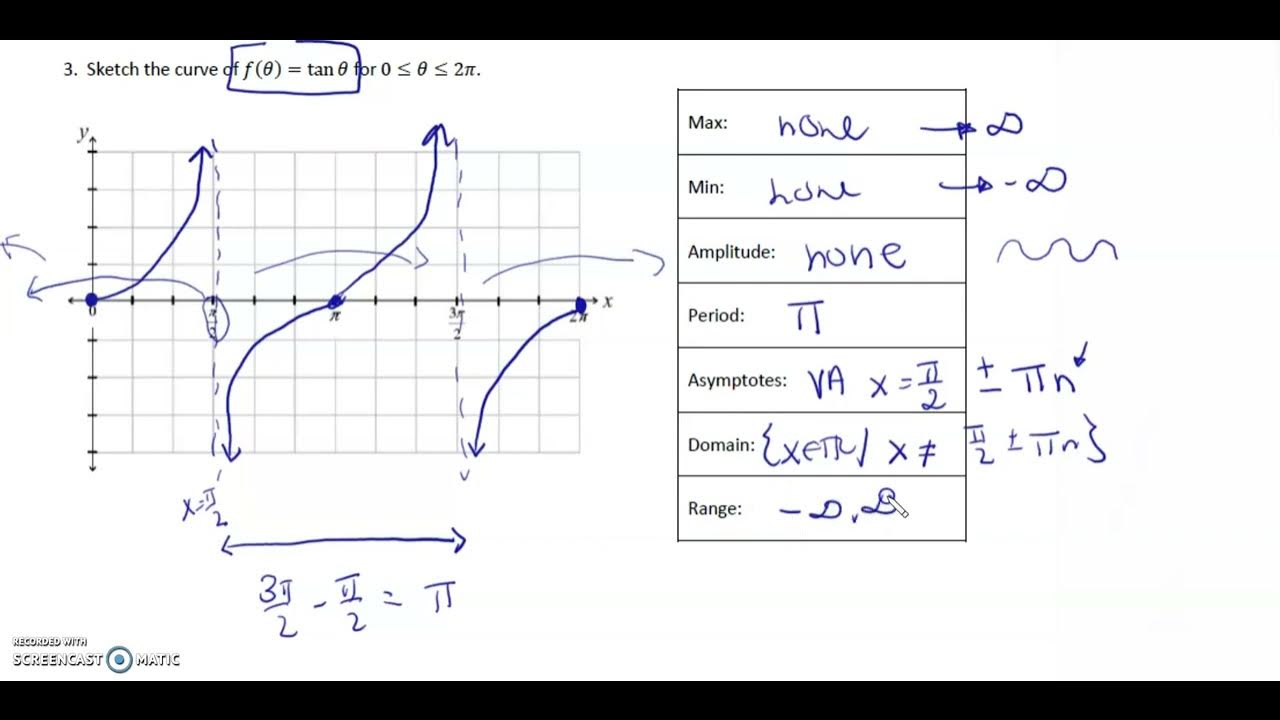 3. Sketch the curve of f(θ) = tan θ for 0 ≤ θ ≤ 2π.
y
0 π/2 π 3π/2 2π x
x=π/2
3π/2 - π/2 = π
Max: none → ∞
Min: none → -∞
Amplitude: none
Period: π
Asymptotes: VA x = π/2 ± πn
Domain: {x∈ℝ/ x ≠ π/2 ± πn}
Range: -∞, ∞
RECORDED WITH
SCREENCAST MATIC